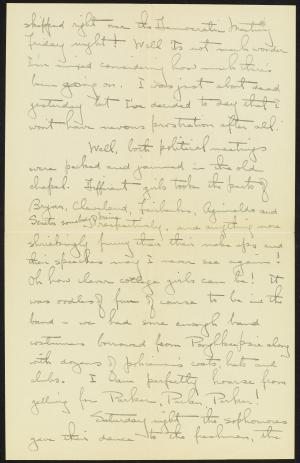 skipped right over the Democratic Meeting
Friday night! Well Its not much wonder
I'm mixed considering how much there's
been going on. I was just about dead
yesterday but I've decided to-day that I
won't have nervous prostration after all.
Well, both political meetings
were packed and jammed in the old
chapel. Different girls took the parts of
Bryan, Cleveland, Fairbanks, Aginaldo and
respectively, and anything more
shriekingly funny than their make ups and
their speeches may I never see again!
Oh how clever college girls can be! It
was oodles of fun of course to be in the
band - we had some enough band
costumes borrowed from Poughkeepsie along
with dozens of policemen's coats, hats and
clubs. I am perfectly hoarse from
yelling for Parker, Parker, Parker!
Saturday night the sophomores
gave their dance to the freshmen, the